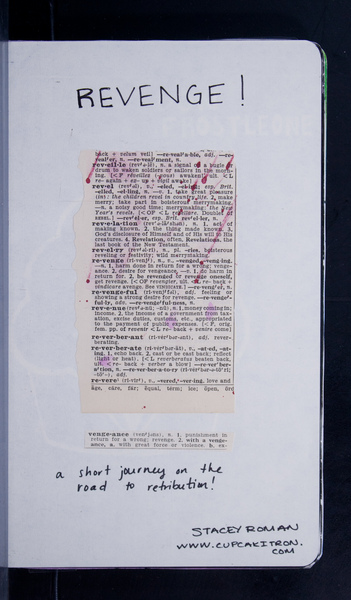 REVENGE!
back + velum veil] —re-veal'a-ble, adj. —re-
veal'er, n. —re-veal'ment, n.
rev-eil-le (rev'ə-lē), n. a signal on a bugle or
drum to waken soldiers or sailors in the morn-
ing.
rev-el (rev'əl), v., -eled, -el-ing; esp. Brit.
-elled, -el-ling, n. —v. 1. take great pleasure
(in): The children revel in country life. 2. make
merry; take part in boisterous merrymaking.
—n. a noisy good time; merrymaking: the New
Year's revels.
rev-e-la-tion n. 1. act of
making known. 2. the thing made known. 3.
God's disclosure of Himself and of His will to His
creatures. 4. Revelation, often, Revelations, the
last book of the New Testament.
rev-el-ry (rev'əl-ri), n., pl. -ries. boisterous
reveling or festivity; wild merrymaking.
re-venge (ri-venj'), n., v., -venged, -veng-ing.
—n. 1. harm done in return for a wrong; venge-
ance. 2. desire for vengeance. —v. 1. do harm in
return for. 2. be revenged or revenge oneself,
get revenge.
re-venge-ful (ri-venj'fəl), adj. feeling or
showing a strong desire for revenge. —re-venge'-
ful-ly, adv. —re-venge'ful-ness, n.
rev-e-nue n. 1. money coming in;
income. 2. the income of a government from tax-
ation, excise duties, customs, etc., appropriated
to the payment of public expenses. [< F, orig.
fem. pp. of revenir < L re- back + venire come]
re-ver-ber-ant adj. rever-
berating.
re-ver-ber-ate v., -at-ed, -at-
ing. 1. echo back. 2. cast or be cast back; reflect
(light or heat).
re-vere (ri-vir'), v., -vered, -ver-ing. love and
venge-ance (ven'jəns), n. 1. punishment in
return for a wrong; revenge. 2. with a venge-
ance, a. with great force or violence. b. ex-
a short journey on the
road to retribution!
STACEY ROMAN
WWW.CUPCAKITRON.
COM